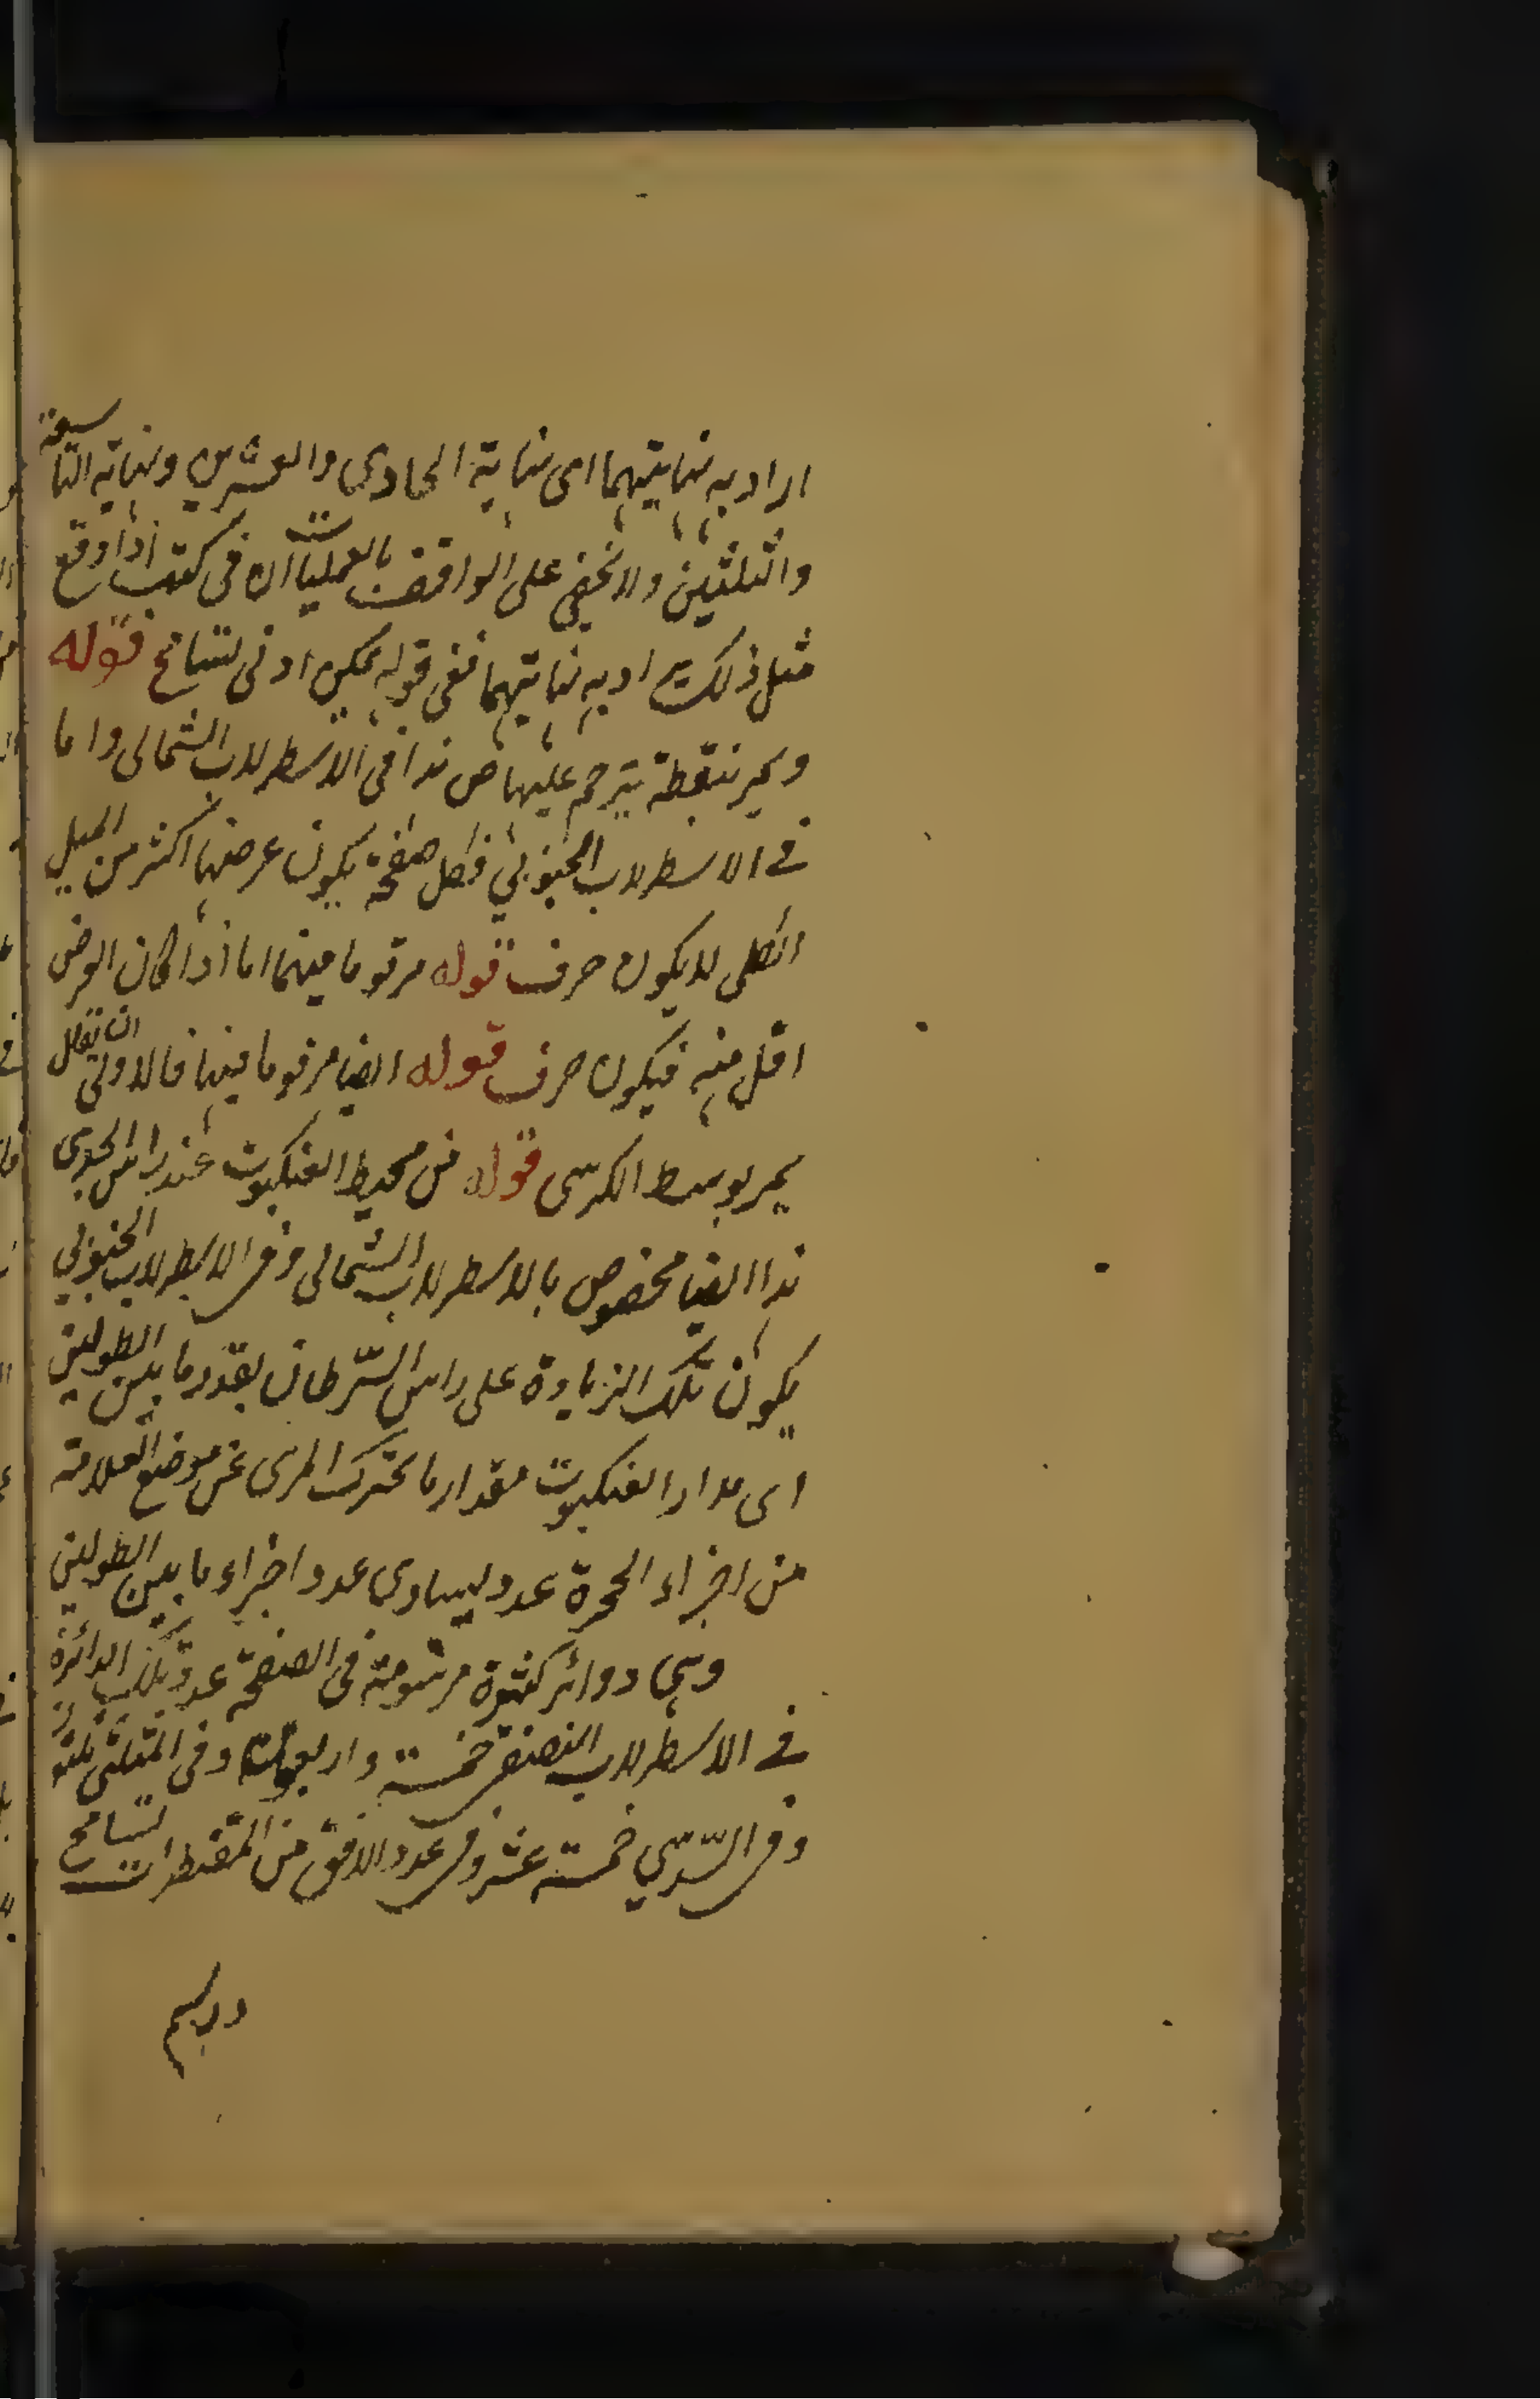 اراد به نهايتهما اى نهاية الحادى والعشرين ونهاية التاسعة
والثلثين ولا يخفى على الواقف بالعمليات ان فى كتب اذا وقع
مثل ذلك اد به نهايتهما ففى قوله يمكن ادنى تسامح قوله
ويمر بنقطة يترحم عليها ص هذا فى الاسطرلاب الشمالى واما
فى الاسطرلاب الجنوبي فكل صفحة يكون عرضها اكثر من الميل
الكلى لا يكون حرف قوله مرقوما فيها اما اذا كان العرض
اقل منه فيكون حرف قوله ايضا مرقوما فيها فالاولى ان يقال
يمر بوسط الكرسى قوله من محيط العنكبوت عند راس الجدى
هذا ايضا مخصوص بالاسطرلاب الشمالى وفى الاسطرلاب الجنوبي
يكون تلك الزيادة على راس السرطان بقدر ما بين الطولين
اى مدار العنكبوت مقدار ما يتحرك المرى عن موضع العلامة
من اجزاء الحجرة عدد يساوى عدد اجزاء ما بين الطولين
وهى دوائر كثيرة مرسومة فى الصفحة عدد تلك الدائرة
فى الاسطرلاب النصفى خمسة واربعون وفى الثلثى ثلثون
وفى السدسي خمسة عشر وفى عدد الافق من المقنطرات تسامح